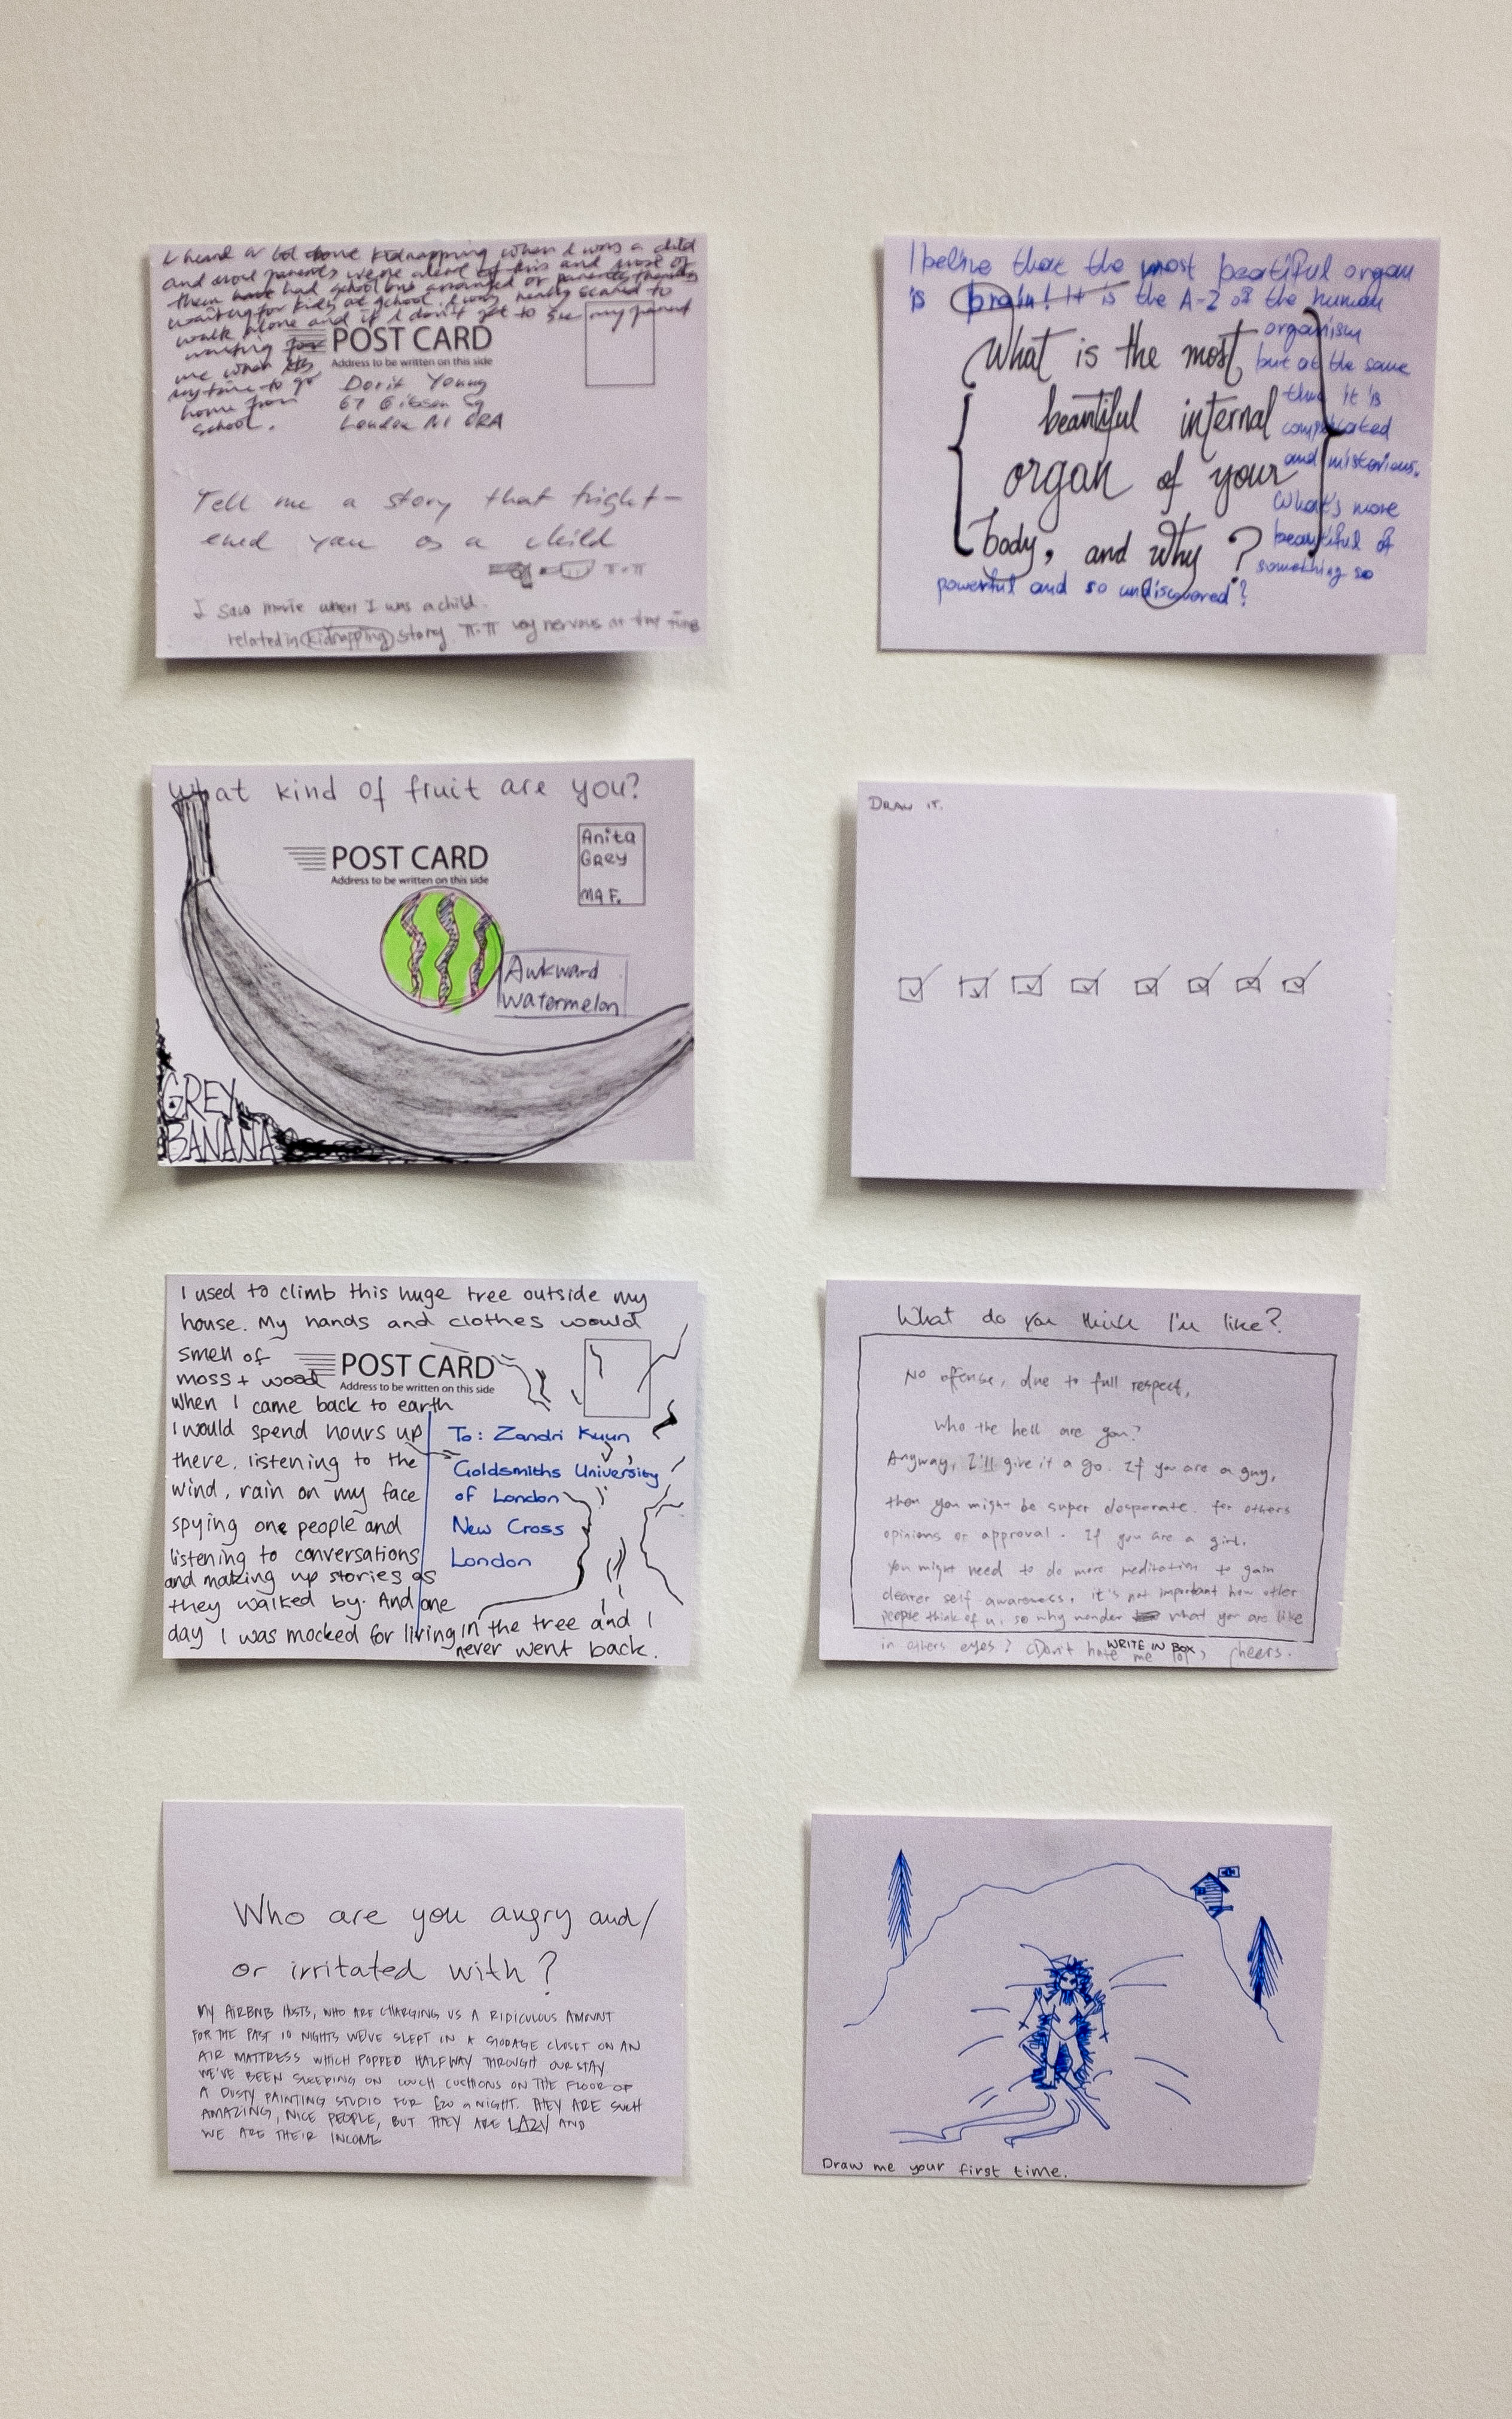 I heard a lot about kidnapping when I was a child
and most parents were alert of this and most of
them had school bus arranged or parents
waiting for kids at school. I was really scared to
walk alone and if I don't get to see my parent
waiting for
me when its
my time to go
home from
school.
POST CARD
Address to be written on this side
Dorit Young
67 Gibson Sq
London N1 0RA
Tell me a story that fright-
ened you as a child
π.π
I saw movie when I was a child.
related in kidnapping story π.π very nervous at the time
I belive that the most beatiful organ
is brain! It is the A-Z of the human
organism
but at the same
time it is
complicated
and misterious.
What's more
beautiful of
something so
powerful and so undiscovered?
What is the most
beautiful internal
organ of your
body, and why?
What kind of fruit are you?
POST CARD
Address to be written on this side
Anita
Grey
MA F.
Awkward
Watermelon
GREY
BANANA
DRAW IT.
I used to climb this huge tree outside my
house. My hands and clothes would
smell of
moss + wood
when I came back to earth
I would spend hours up
there, listening to the
wind, rain on my face
spying one people and
listening to conversations
and making up stories as
they walked by. And one
day I was mocked for living in the tree and I
never went back.
POST CARD
Address to be written on this side
To: Zandri Kuun
Goldsmiths University
of London
New Cross
London
What do you think I'm like?
No offense, due to full respect,
who the hell are you?
Anyway, I'll give it a go. If you are a guy,
then you might be super desperate for others
opinions or approval. If you are a girl,
you might need to do more meditation to gain
clearer self awareness, it's not important how other
people think of u, so why wonder what you are like
in others eyes? (Don't hate me lol), cheers.
WRITE IN BOX
Who are you angry and/
or irritated with?
MY AIRBNB HOSTS, WHO ARE CHARGING US A RIDICULOUS AMOUNT
FOR THE PAST 10 NIGHTS WE'VE SLEPT IN A STORAGE CLOSET ON AN
AIR MATTRESS WHICH POPPED HALFWAY THROUGH OUR STAY
WE'VE BEEN SLEEPING ON COUCH CUSHIONS ON THE FLOOR OF
A DUSTY PAINTING STUDIO FOR £20 a NIGHT. THEY ARE SUCH
AMAZING, NICE PEOPLE, BUT THEY ARE LAZY AND
WE ARE THEIR INCOME
Draw me your first time.